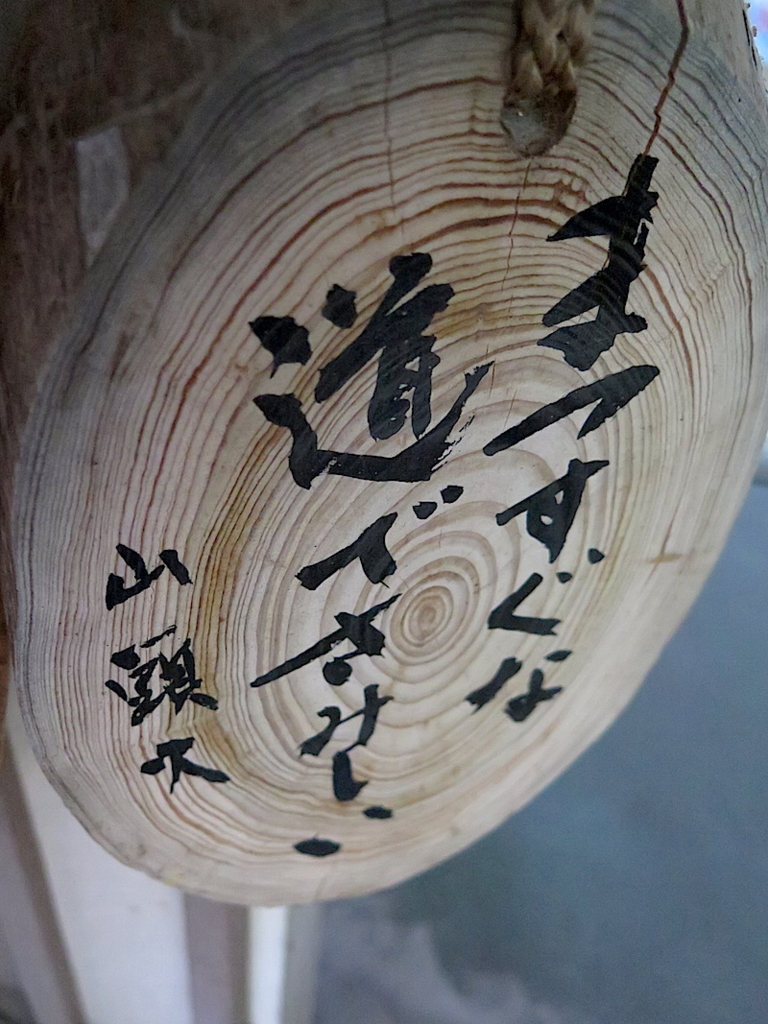 まつすぐな
道でさみしい
山頭火